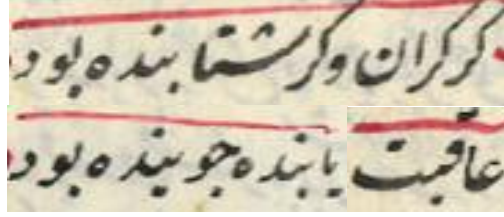 کر کران وکر شتابنده بود
عاقبت یابنده جوینده بود